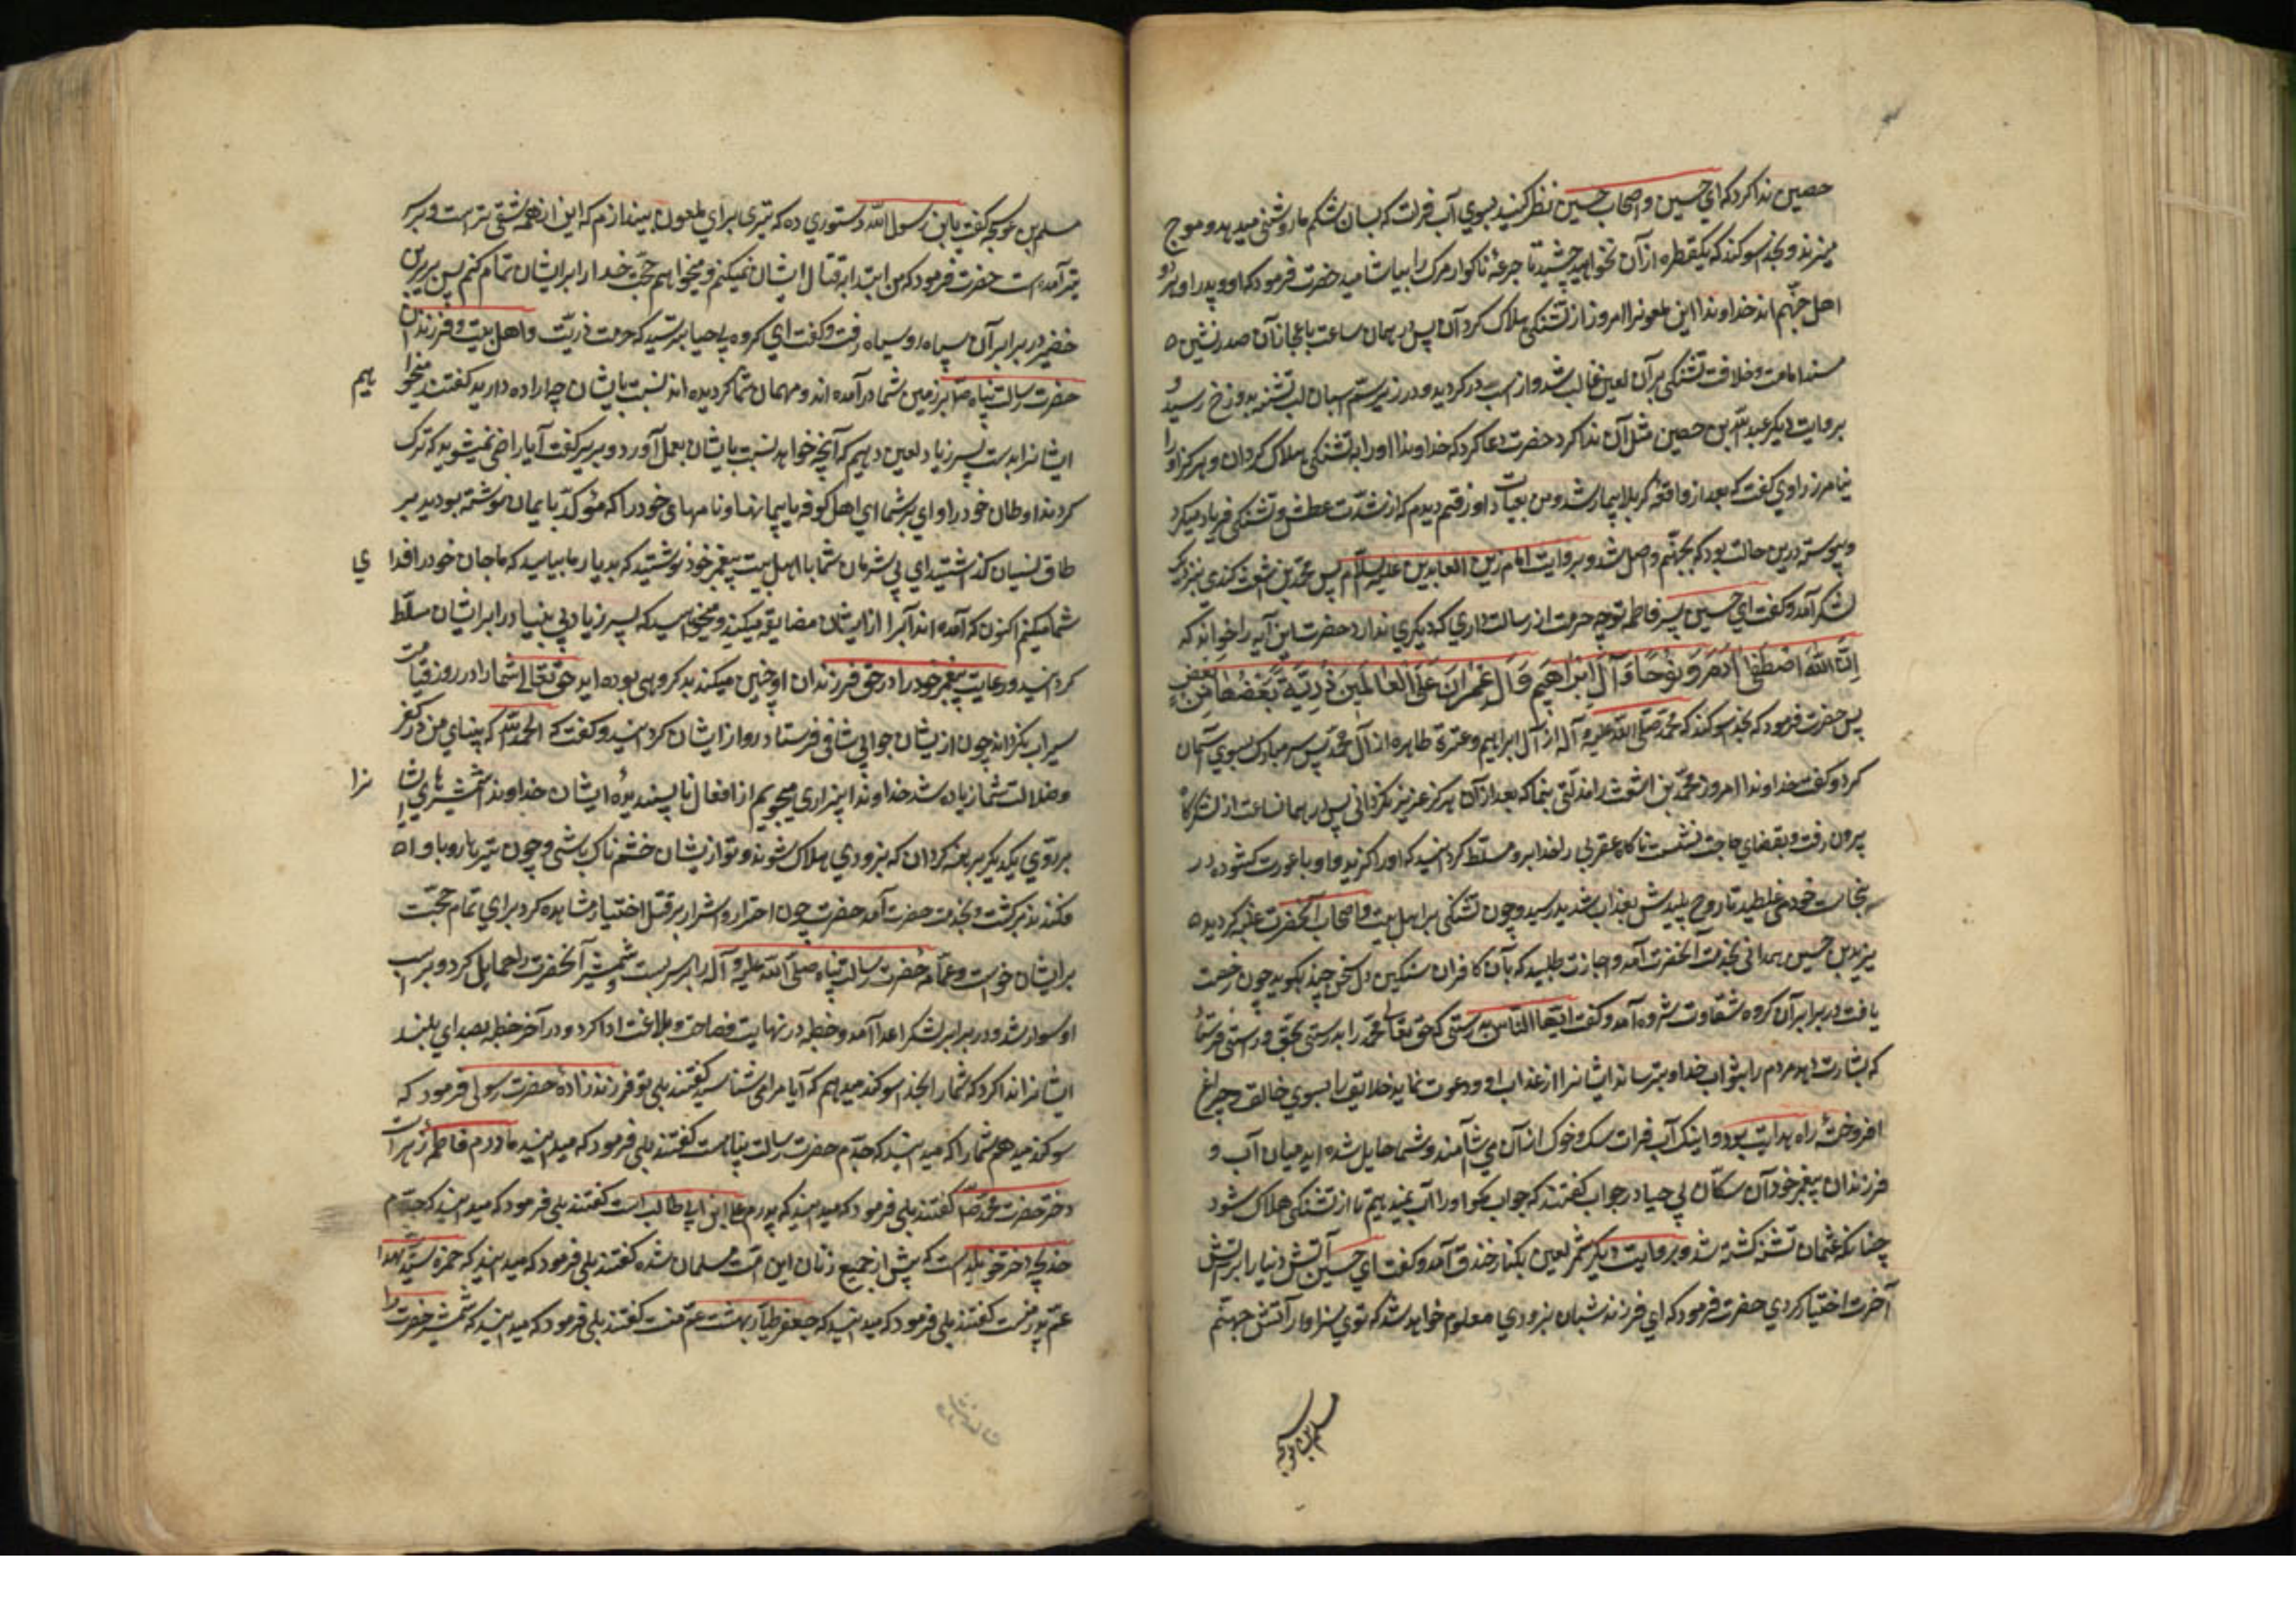 حصین ندا کرد که ای حسین و اصحاب حسین نظر کنید بسوی آب فرات که بسان شکم مار روشنی میدهد و موج
میزند و بخدا سوکند که یکقطره از آن نخواهید چشید تا جرعۀ ناکوار مرک را بیاشامید حضرت فرمود که او و پدر او هر دو
اهل جهنّم اند خداوندا این ملعونرا امروز از تشنکی هلاک کردان پس در همان ساعت باعجاز آن صدرنشین
مسند امامت و خلافت تشنکی بر آن لعین غالب شد و از اسب در کردید و در زیر ستم اسبان لب تشنه بدوزخ رسید و
بروایت دیکر عبد اللّه بن حصین مثل آن ندا کرد حضرت دعا کرد که خداوندا او را به تشنکی هلاک کردان و هرکز او را
نیامرز راوی کفت که بعد از واقعۀ کربلا بیمار شد و من بعیادت او رفتم دیدم که از شدّت عطش و تشنکی فریاد میکرد
و پیوسته درین حالت بود که بجهنّم واصل شد و بروایت امام زین العابدین علیه السلام پس محمّد بن اشعث کندی بنزدیک
لشکر آمد و کفت ای حسین پسر فاطمه تو چه حرمت از رسالت داری که دیکری ندارد حضرت این آیه را خواند که
اِنَّ اللّٰهَ اصْطَفٰی اٰدَمَ وَ نُوْحًا وَ اٰلَ اِبْرَاهِیْمَ وَ اٰلَ عِمْرَانَ عَلَی الْعَالَمِیْنَ ذُرِّیَّةً بَعْضُهَا مِنْ بَعْضٍ
پس حضرت فرمود که بخدا سوکند که محمّد صلّی اللّه علیه و آله از آل ابراهیم و عترة طاهره از آل محمّد پس سر مبارک بسوی آسمان
کرد و کفت خداوندا امروز محمّد بن اشعث را مذلّتی بنما که بعد از آن هرکز عزیز نکردانی پس در همان ساعت از لشکرکاه
بیرون رفت و بقضای حاجت نشست ناکاه عقربی را خدا برو مسلّط کردانید که او را کزید و او با عورت کشوده در
نجاسات خود می غلطید تا روح پلیدش بعذاب شدید رسید و چون تشنکی بر اهل بیت و اصحاب آنحضرت غلبه کردید
یزید بن حسین همدانی بخدمت آنحضرت آمد و اجازت طلبید که با آن کافران سنکین دل سخنی چند بکوید چون رخصت
یافت در برابر آن کروه شقاوت شروه آمد و کفت ایّها النّاس بدرستی که حق تعالی محمّد را بدرستی بحق و راستی فرستاد
که بشارت دهد مردم را بثواب خدا و بترساند ایشانرا از عذاب او و دعوت نماید خلایق را بسوی خالق و چراغ
افروختۀ راه هدایت بود و اینک آب فرات سک و خوک از آن می آشامند و شما حایل شده اید میان آب و
فرزندان پیغمبر خود آن سکان بی حیا در جواب کفتند که جواب مکو او را آب نمیدهیم تا از تشنکی هلاک شود
چنانکه عثمان تشنه کشته شد و بروایت دیکر شمر لعین بکنار خندق آمد و کفت ای حسین آتش دنیا را بر آتش
آخرت اختیار کردی حضرت فرمود که ای فرزند شبان بزودی معلوم خواهد شد که توی سزاوار آتش جهنّم
مسلم بن عوسجه
مسلم بن عوسجه کفت یا بن رسول اللّه دستوری ده که تیری برای ملعون بیندازم که این از همه شقی تر است و بر سر
تیر آمده است حضرت فرمود که من ابتدا به قتال ایشان نمیکنم و میخواهم حجّت خدا را بر ایشان تمام کنم پس بریر بن
خضیر در برابر آن سپاه رو سیاه رفت و کفت ای کروه بیحیا بترسید که حرمت ذریّت و اهل بیت و فرزندان
حضرت رسالت پناه صلّ بر زمین شما در آمده اند و مهمان شما کردیده اند نسبت بایشان چه اراده دارید کفتند میخوا هیم
ایشانرا بدست پسر زیاد لعین دهیم که آنچه خواهد نسبت بایشان بعمل آورد و بریر کفت آیا راضی نمیشوید که ترک
کردند اوطان خود را وای بر شما ای اهل کوفه یا پیمانها و نامهای خود را که مؤکّد بایمان نوشته بودید بر
طاق نسیان کذاشتید ای بی شرمان شما با اهل بیت پیغمبر خود نوشتید که بدیار ما بیایید که ما جان خود را فدای
شما میکنیم اکنون که آمده اند آب را از ایشان مضایقه میکنید و میخواهید که پسر زیاد بی بنیاد را بر ایشان مسلّط
کردانید و رعایت پیغمبر خود را در حق فرزندان او چنین میکنید بد کروهی بوده اید حق تعالی شما را در روز قیامت
سیراب نکرداند چون از ایشان جوابی شافی فرستاد رو از ایشان کردانید و کفت که الحمد للّه که بینای من در کفر
و ضلالت شما زیاده شد خداوندا بیزاری میجویم از افعال نا پسندیدۀ ایشان خداوندا شمشیرهای ایشا نرا
بر روی یکدیکر برهنه کردان که بزودی هلاک شوند و تو از ایشان خشم ناک باشی و چون تیر بار و با و
فکندند برکشت و بخدمت حضرت آمد حضرت چون احترار و اشرار بر قتل اختیار مشاهده کرد برای تمام حجّت
بر ایشان خواست و عمّامۀ حضرت رسالت پناه صلّی اللّه علیه و آله را بر سر بست و شمشیر آنحضرت را حمایل کرد و بر اسب
او سوار شد و در برابر لشکر اعدا آمد و خطبه در نهایت فصاحت و بلاغت ادا کرد و در آخر خطبه بصدای بلند
ایشانرا ندا کرد که شما را بخدا سوکند میدهم که آیا مرا می شناسید کفتند بلی تو فرزند زادۀ حضرت رسولی فرمود که
سوکند میدهم شما را که میدانید که جدّم حضرت رسالت پناه است کفتند بلی فرمود که میدانید مادرم فاطمۀ زهراست
دختر حضرت محمّد صلّ کفتند بلی فرمود که میدانید که پدرم علی ابن ابی طالب است کفتند بلی فرمود که میدانید که جدّه ام
خدیجه دختر خویلد است که پیش از جمیع زنان این امّت مسلمان شده کفتند بلی فرمود که میدانید که حمزه سیّد الشهدا
عمّ پدر منست کفتند بلی فرمود که میدانید که جعفر طیّار بهشت عمّ منست کفتند بلی فرمود که میدانید که شمشیر حضرت را